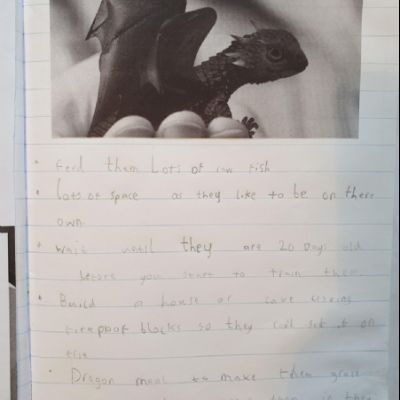 • feed them Lots of raw fish
• Lots of space as they like to be on there
own
• wait until they are 20 Days old
before you start to train them
• Build a house or cave
fireproof blocks so they set it on
• Dragon meal to make them grow
they